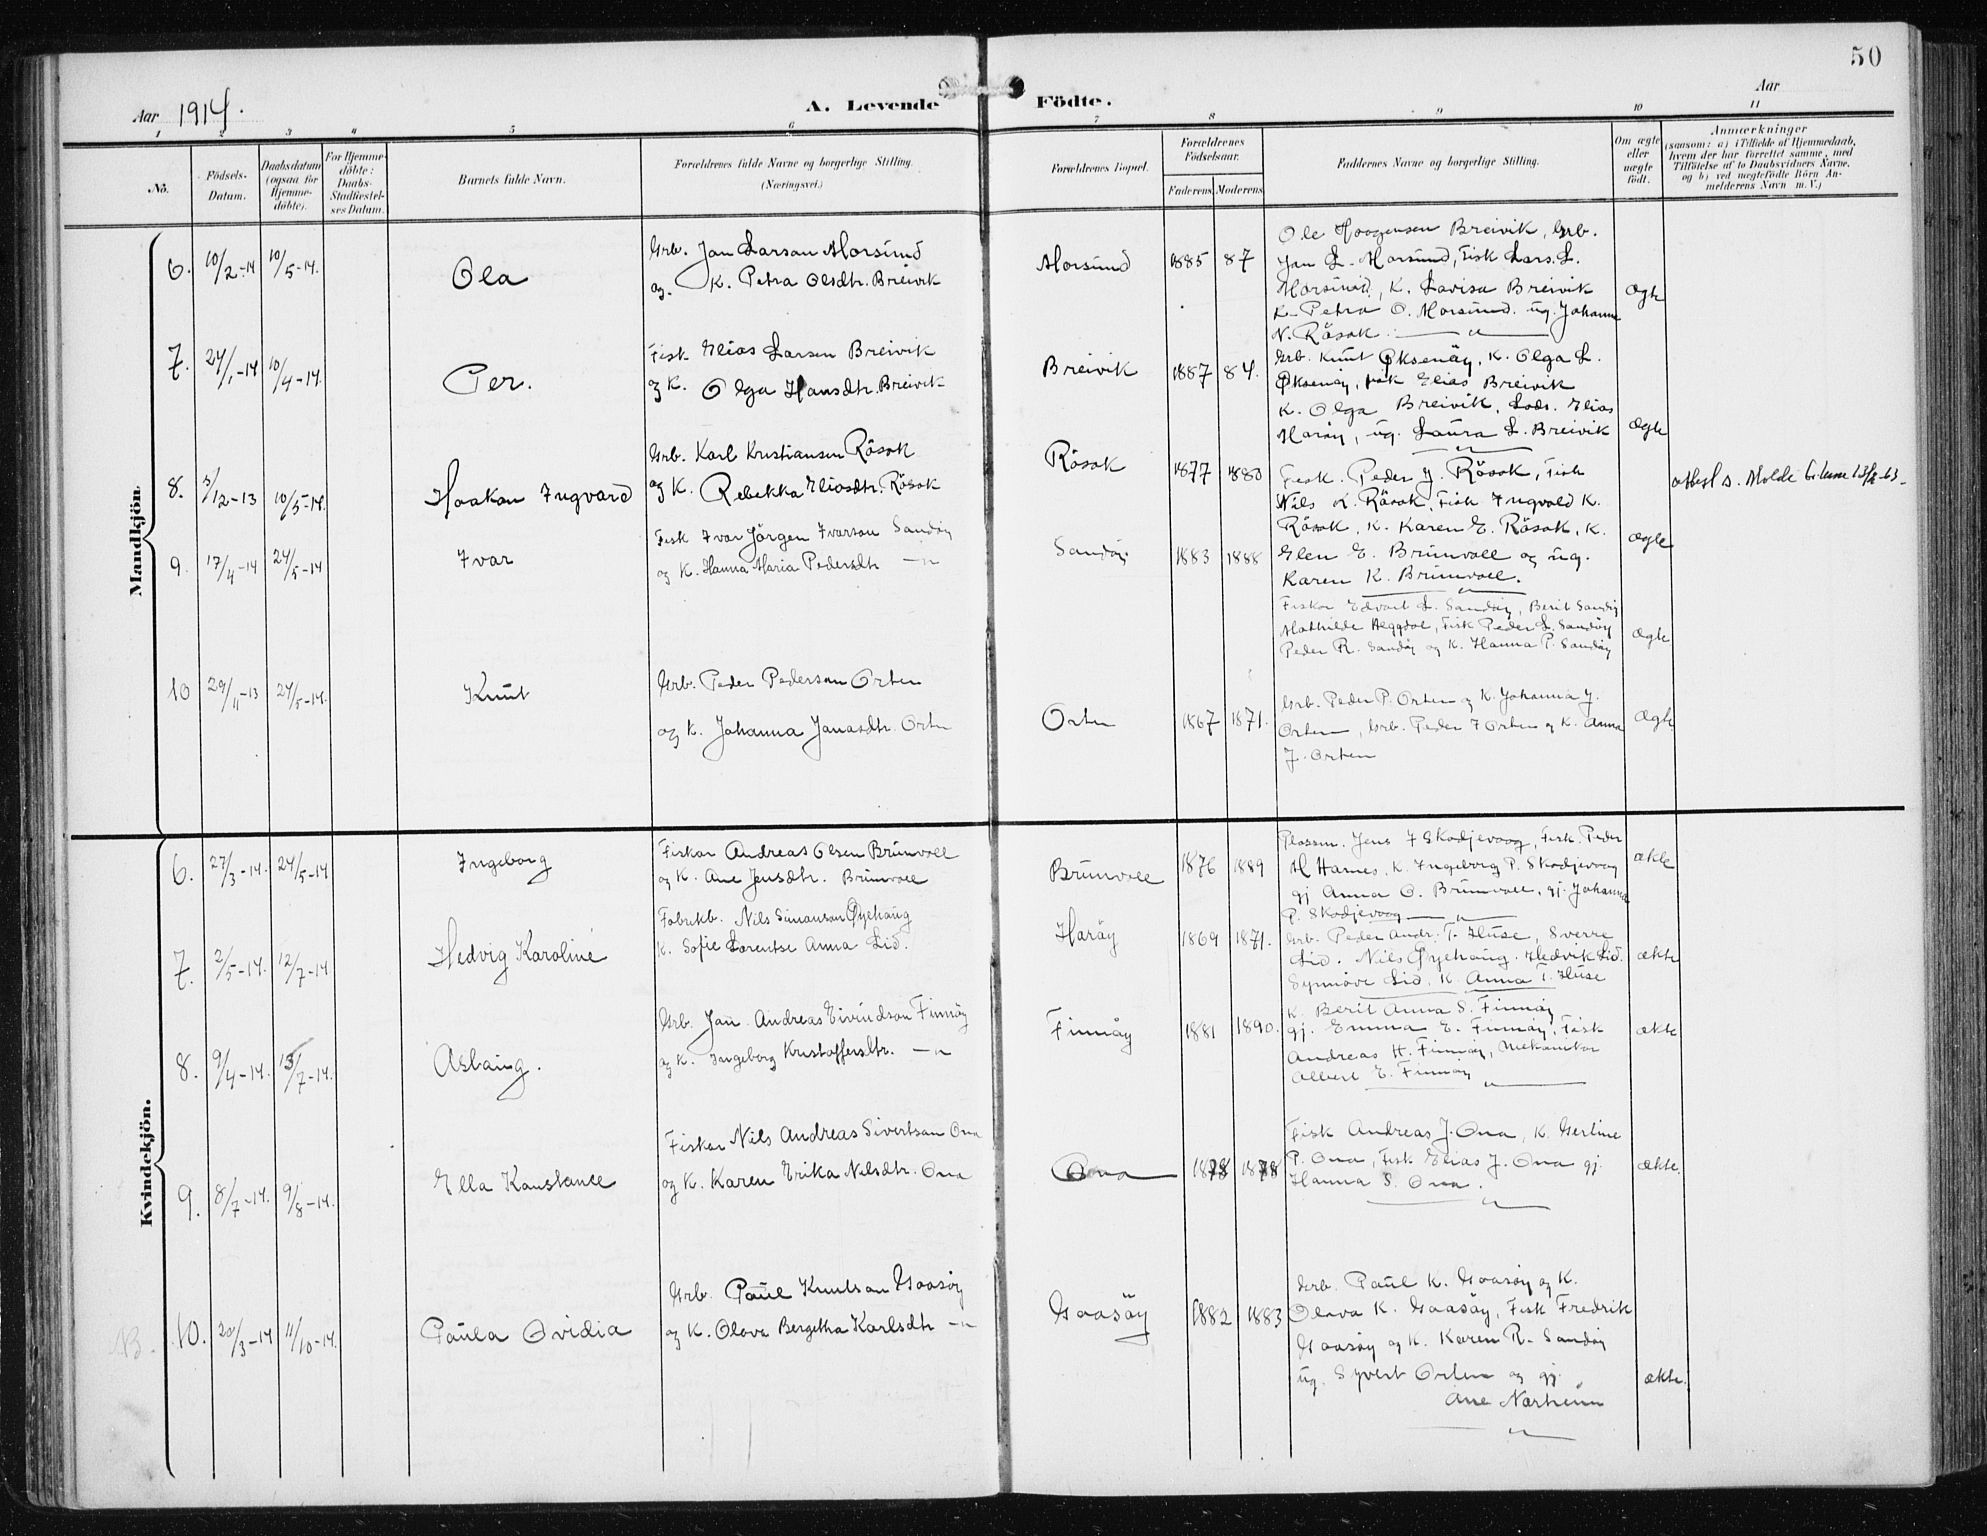 50
Aar 1914.
A. Levende Födte.
Aar
1 2 3 4 5 6 7 8 9 10 11
No.
Födsels-Datum.
Daabsdatum (ogsaa for Hjemme-döbte).
For Hjemme-döbte: Daabs-Stadfæstel-ses Datum.
Barnets fulde Navn.
Forældrenes fulde Navne og borgerlige Stilling. (Næringsvei.)
Forældrenes Bopæl.
Forældrenes Födselsaar.
Faderens
Moderens
Faddernes Navne og borgerlige Stilling.
Om ægte eller uægte født.
Anmærkninger
(saasom: a) i Tilfælde af Hjemmedaab, hvem der har forrettet samme, med Tilföielse af to Daabsvidners Navne, og b) ved uægtefödte Börn An-melderens Navn m. V.)
Mandkjön.
6. 10/2-14 10/5-14. Ola
Grb. Jan Larsan Morsund
og K. Petra Olsdtr. Breivik
Morsund 1885 87
Ole Haagensen Breivik, Grb.
Jan L. Morsund, Fisk Lars L.
Morsund, K. Lovisa Breivik
K. Petra O. Morsund. ug. Johanna
N. Rösok
Ægte
7. 24/1-14 10/4-14. Per.
Fisk Elias Larsen Breivik
og K. Olga Hansdtr. Breivik
Breivik 1887 84.
Grb. Knut Øksenöy, K. Olga L.
Øksenöy, fisk Elias Breivik
K. Olga Breivik, Lods. Elias
Haröy, ug. Laura L. Breivik
Ægte
8. 3/12-13 10/5-14. Haakon Ingvard
Grb. Karl Kristiansen Rösok
og K. Rebekka Eliasdtr. Rösok
Rösok 1877 1880
Fisk. Peder J. Rösok, Fisk
Nils K. Rösok, Fisk Ingvald K.
Rösok, K. Karen E. Rösok, K.
Elen E. Brunvoll og ug.
Karen K. Brunvoll.
Ægte
9. 17/4-14 24/5-14 Ivar
Fisk Ivar Jörgen Ivarson Sandöy
og K. Hanna Maria Pedersdtr —"—
Sandöy. 1883 1888
Fisker Edvart L. Sandöy, Berit Sandöy
Mathilde Heggdal, Fisk Peder L. Sandöy
Peder R. Sandöy og K. Hanna P. Sandöy
Ægte
10 29/11-13 24/5-14. Knut
Grb. Peder Pedersen Orten
og K. Johanna Janasdtr. Orten
Orten 1867 1871.
Grb. Peder P. Orten og K. Johanna J.
Orten, Grb. Peder I Orten og K. Anna
J. Orten
Ægte
Kvindekjön.
6. 27/3-14. 24/5-14 Ingeborg
Fisker Andreas Olsen Brunvoll
og K. Ane Jensdtr. Brunvoll
Brunvoll 1876 1889
Plassm. Jens I Skodjevaag, Fisk. Peder
M Harnes, K. Ingeborg P. Skodjevaag
gj Anna O. Brunvoll, gj. Johanna
P. Skodjevaag
ækte
7. 2/5-14. 12/7-14 Hedvig Karoline
Fabrikb. Nils Simonson Øyehaug
K. Sofie Lorentse Anna Lid.
Haröy 1869 1871.
Grb. Peder Andr. T. Huse, Sverre
Lid. Nils Øyehaug. Hedvik Lid.
Synnöve Lid, K. Anna T. Huse
ækte
8. 9/4-14. 13/7-14. Aslaug.
Grb. Jan Andreas Eivindson Finnöy
og K. Ingeborg Kristoffersdtr. —"—
Finnöy 1881 1890.
K. Berit Anna S. Finnöy
gj. Emma E. Finnöy, Fisk
Andreas H. Finnöy, Mekanikar
Albert E. Finnöy
ækte
9. 8/7-14. 9/8-14. Ella Konstance
Fisker Nils Andreas Sivertsan Ona
og K. Karen Erika Nilsdtr. Ona
Ona 1878 1878
Fisk Andreas J. Ona, K. Gerline
P. Ona, Fisk Elias J. Ona gj.
Hanna S. Ona.
ækte.
NB. 10. 20/3-14 11/10-14. Paula Ovidia
Grb. Paul Knutsan Gaasöy
og K. Olava Bergitha Karlsdtr —"—
Gaasöy 1882 1883
Grb. Paul K. Gaasöy og K.
Olava K. Gaasöy, Fisk Fredrik
Gaasöy og K. Karen R. Sandöy
ug. Syvert Orten og gj.
Ane Nærheim
ækte.